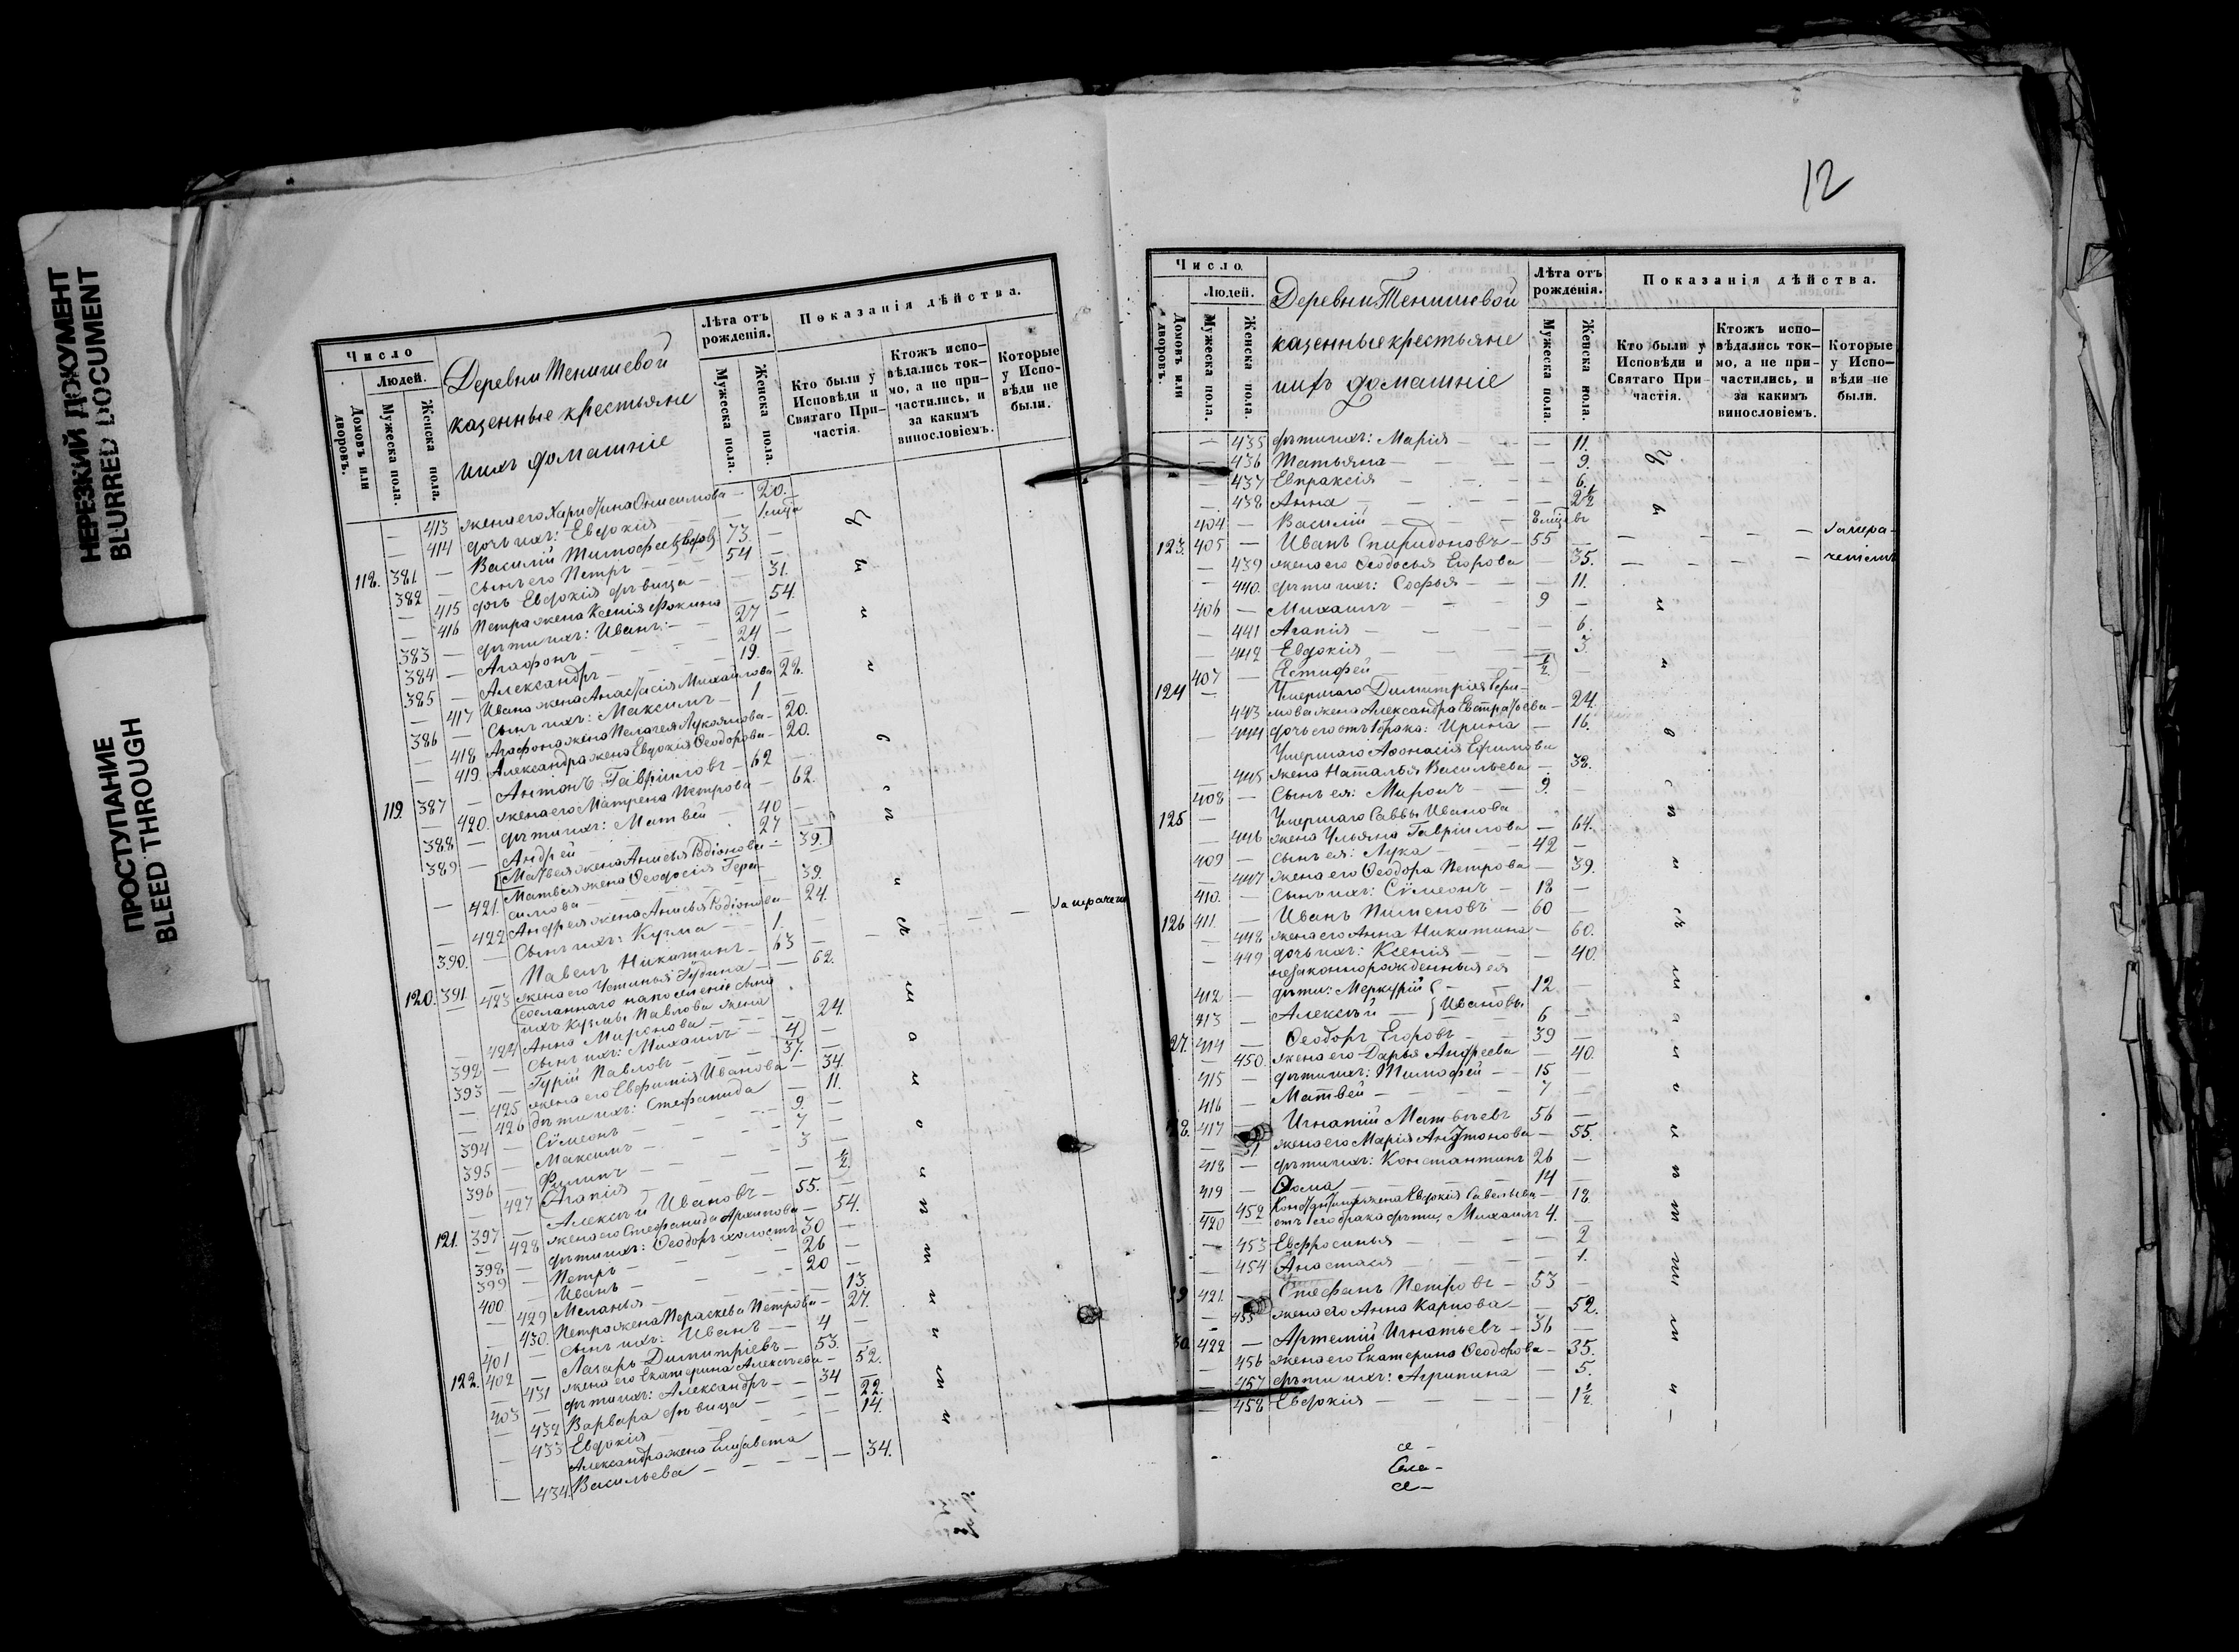 НЕРЕЗКИЙ ДОКУМЕНТ
BLURRED DOCUMENT
ПРОСТУПАНИЕ
BLEED THROUGH
Число
Людей.
Домовъ или дворовъ.
Мужеска пола.
Женска пола.
Деревни Тенишевой
казенные крестьяне
и ихъ домашніе
Лѣта отъ рожденія.
Мужеска пола.
Женска пола.
Показанія дѣйства.
Кто были у Исповѣди и Святаго Причастія.
Ктожъ исповѣдались токмо, а не причастились, и за какимъ винословіемъ.
Которые у Исповѣди не были.
— 413 жена его Харитина Онисимова — 20.
— 414 дочь ихъ: Евдокія —
118. 381 — Василій Тимофеевъ вдовъ 73 —
382 — Сынъ его Петръ — 54 —
— 415 дочь Евдокія дѣвица — 31.
— 416 Петра жена Ксенія Фокина — 54.
383 — дѣти ихъ: Иванъ: — 27 —
384 — Агафонъ — 24 —
385 — Александръ — 19. —
— 417 Ивана жена Анастасія Михайлова 28.
386 — Сынъ ихъ: Максимъ — 1 —
— 418 Агафона жена Пелагея Лукоянова — 20.
— 419. Александра жена Евдокія Ѳеодорова — 20.
119. 387 — Антонъ Гавріиловъ — 62 —
— 420. жена его Матрена Петрова — 62.
388 — дѣти ихъ: Матвей — 40 —
389 — Андрей — 27
Матвея жена Анисья Родіонова — 39.
Матвея жена Ѳеодосія Гера-
— 421. симова — 39.
— 422 Андрея жена Анисья Родіонова — 24.
390. — Сынъ ихъ: Кузма — 1. —
120. 391. — Павелъ Никитинъ — 63 —
— 423 жена его Устинья Юдина — 62.
сосланнаго на поселеніе сына
ихъ Кузмы Павлова жена
— 424 Анна Миронова — 24.
392 — Сынъ ихъ: Михаилъ — 4 —
393 — Гурій Павловъ — 37. —
— 425 жена его Евфимія Иванова — 34.
— 426 дѣти ихъ: Стефанида — 11.
394 — Сѵмеонъ — 9. —
395 — Максимъ — 7 —
396 — Филипъ — 3 —
— 427 Агапія — ½
121. 397 — Алексѣй Ивановъ — 55. —
— 428 жена его Стефанида Архипова — 54.
398 — дѣти ихъ: Ѳеодоръ холостъ 30 —
399 — Петръ — 26 —
400 — Иванъ — 20 —
— 429 Меланья — 13.
— 430. Петра жена Параскева Петрова — 27.
401 — сынъ ихъ: Иванъ — 4 —
122. 402 — Лазарь Димитріевъ — 53. —
— 431 жена его Екатерина Алексѣева — 52.
403 — дѣти ихъ: Александръ — 34 —
— 432 Варвара дѣвица — 22.
— 433 Евдокія — 14.
Александра жена Елисавета
— 434. Васильева — 34.
12
Число.
Людей.
Домовъ или дворовъ.
Мужеска пола.
Женска пола.
Деревни Тенишевой
казенные крестьяне
и ихъ домашніе
Лѣта отъ рожденія.
Мужеска пола.
Женска пола.
Показанія дѣйства.
Кто были у Исповѣди и Святаго Причастія.
Ктожъ исповѣдались токмо, а не причастились, и за какимъ винословіемъ.
Которые у Исповѣди не были.
— 435 дѣти ихъ: Марія — 11.
— 436 Татьяна — 9.
— 437 Евпраксія — 6.
— 438 Анна — 2½
404 — Василій —
123. 405 — Иванъ Спиридоновъ — 55 —
— 439 жена его Ѳеодосья Егорова — 35.
— 440. дѣти ихъ: Софья — 11.
406 — Михаилъ — 9 —
— 441 Агапія — 6.
— 442 Евдокія — 3.
407 — Естифей — ½ —
124 — Умершаго Димитрія Гера-
443 мова жена Александра Евстратьева — 24.
— 444 дочь его отъ 1 брака: Ирина — 16.
Умершаго Аѳонасія Ефимова
— 445 жена Наталья Васильева — 38.
408 — Сынъ ея: Миронъ — 9. —
125 — Умершаго Саввы Иванова
— 446 жена Ульяна Гавріилова — 64.
409 — Сынъ ея: Лука — 42 —
— 447 жена его Ѳеодора Петрова — 39.
410. — Сынъ ихъ: Сѵмеонъ — 18 —
126 411. — Иванъ Пименовъ — 60 —
— 448 жена его Анна Никитина — 60.
— 449 дочь ихъ: Ксенія — 40.
незаконнорожденныя ея
412 — дѣти: Меркурій — 12. —
413 — Алексѣй — } Ивановы 6 —
27. 414 — Ѳеодоръ Егоровъ — 39 —
— 450. жена его Дарья Андреева — 40.
415 — дѣти ихъ: Тимофей — 15 —
416 — Матвей — 7 —
417 — Игнатій Матвѣевъ 56 —
жена его Марія Антонова — 55.
418 — дѣти ихъ: Константинъ 26 —
419 — Ѳома — 14 —
— 452 Константина жена Евдокія Савельева — 18.
420 отъ 1 его брака дѣти, Михаилъ 4. —
— 453 Евфросинья — 2
— 454 Анастасія — 1.
421. — Стефанъ Петровъ — 53 —
— 455 жена его Анна Карпова — 52.
30. 422 — Артемій Игнатьевъ — 36 —
— 456 жена его Екатерина Ѳеодорова — 35.
— 457 дѣти ихъ: Агрипина — 5.
— 458 Евдокія — 1½.